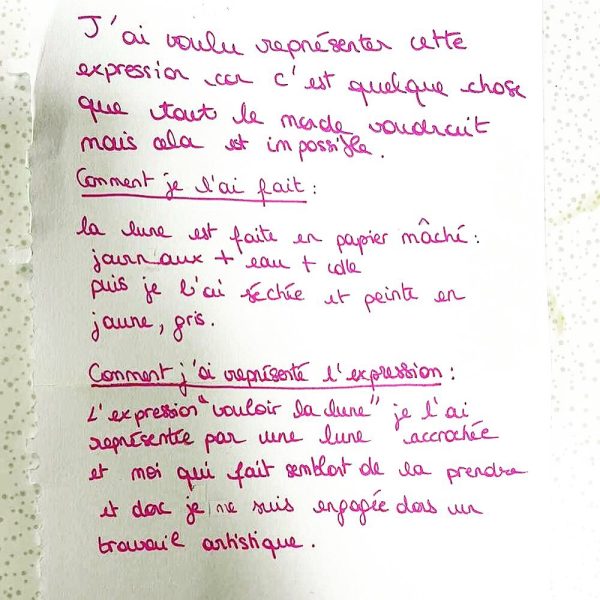 J'ai voulu représenter cette
expression car c'est quelque chose
que tout le monde voudrait
mais cela est impossible.
Comment je l'ai fait :
la lune est faite en papier mâché :
journaux + eau + colle
puis je l'ai séchée et peinte en
jaune, gris.
Comment j'ai représenté l'expression :
L'expression "vouloir la lune" je l'ai
représentée par une lune accrochée
et moi qui fait semblant de la prendre
et donc je me suis engagée dans un
travail artistique.